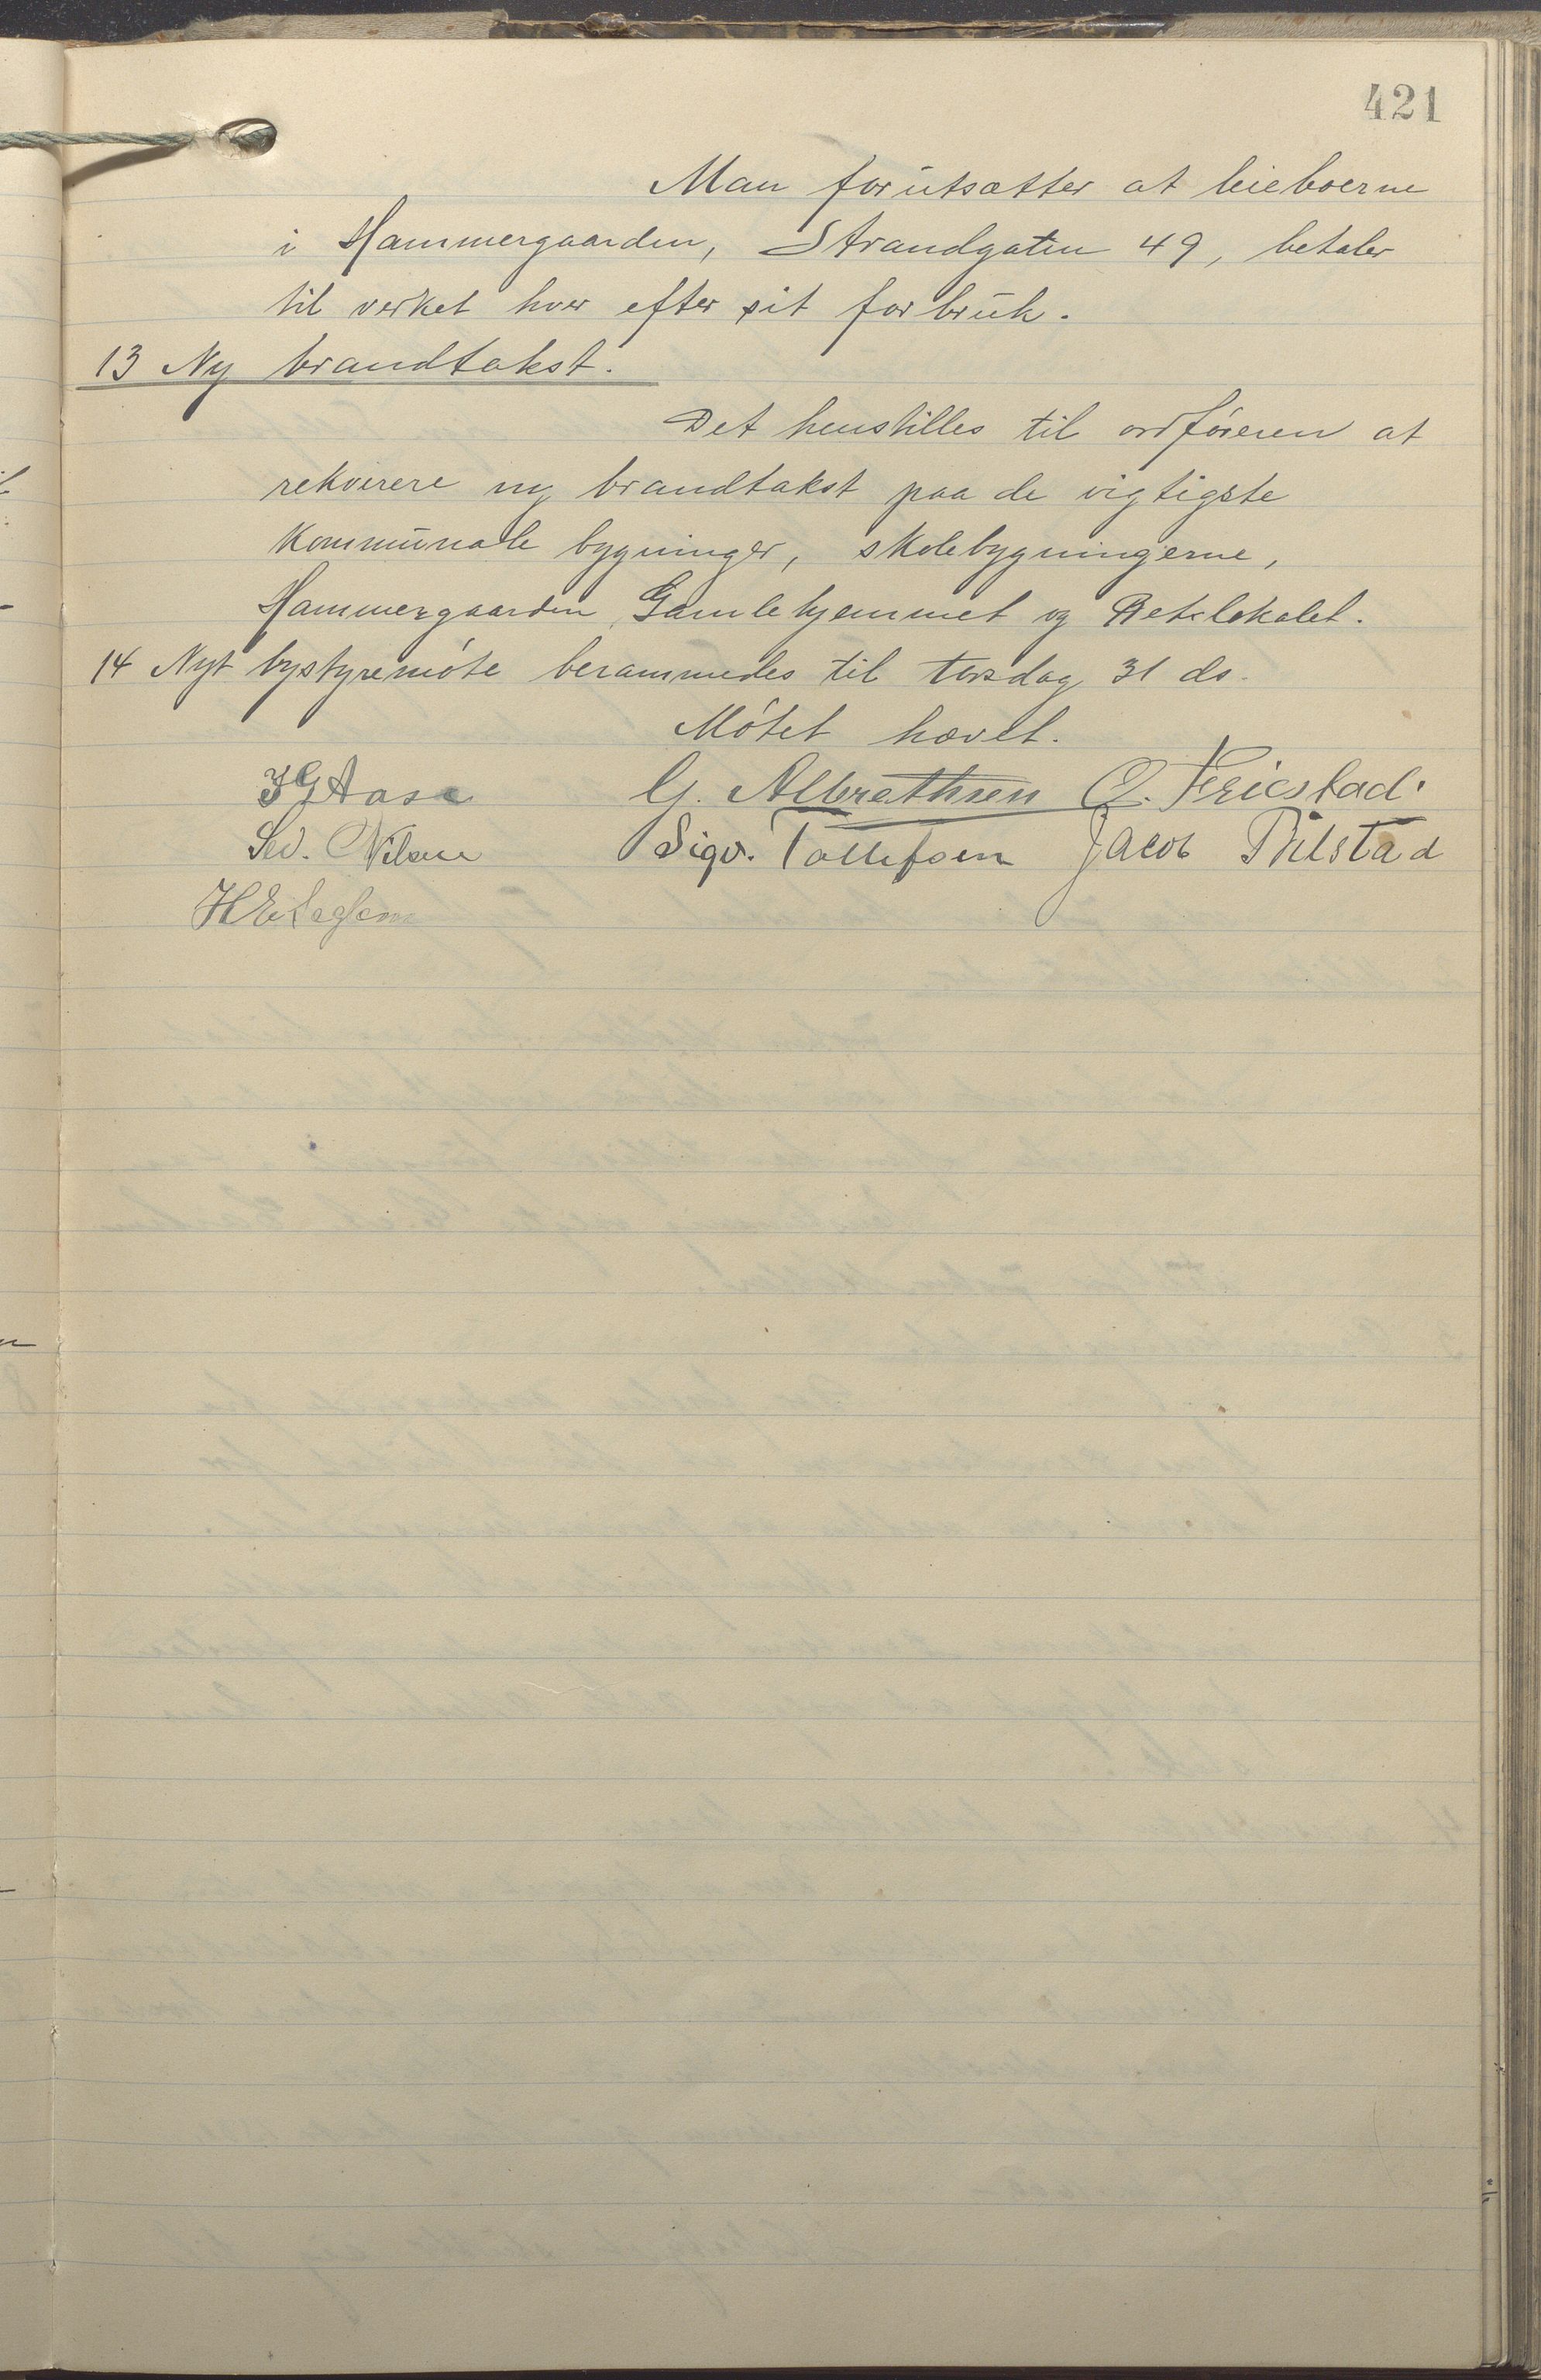 421
Man forutsætter at leieboerne
i Hammergaarden, Strandgaten 49, betaler
til verket hver efter sit forbruk.
13 Ny brandtakst.
Det henstilles til ordføreren at
rekvirere ny brandtakst paa de vigtigste
kommunale bygninger, skolebygningerne,
Hammergaarden, Gamlehjemmet og Retslokalet.
14 Nyt bystyremøte berammedes til torsdag 31 ds.
Møtet hævet.
G. Albrethsen
Nilsen Sigv. Tollefsen Jacob